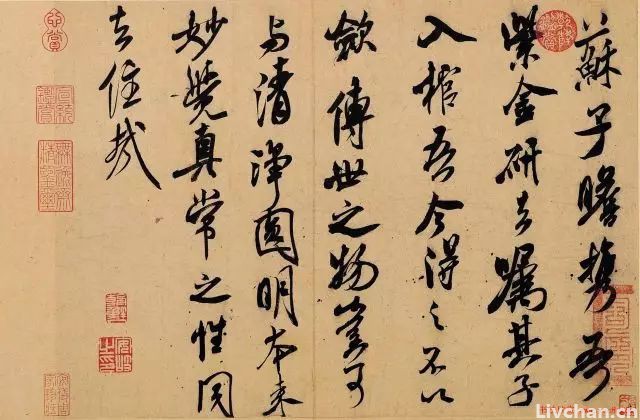 蘇子瞻携吾
紫金研去嘱其子
入棺吾今得之不以
歛傳世之物豈可
与清淨圓明本来
妙覺真常之性同
去住哉
Livchan.cn